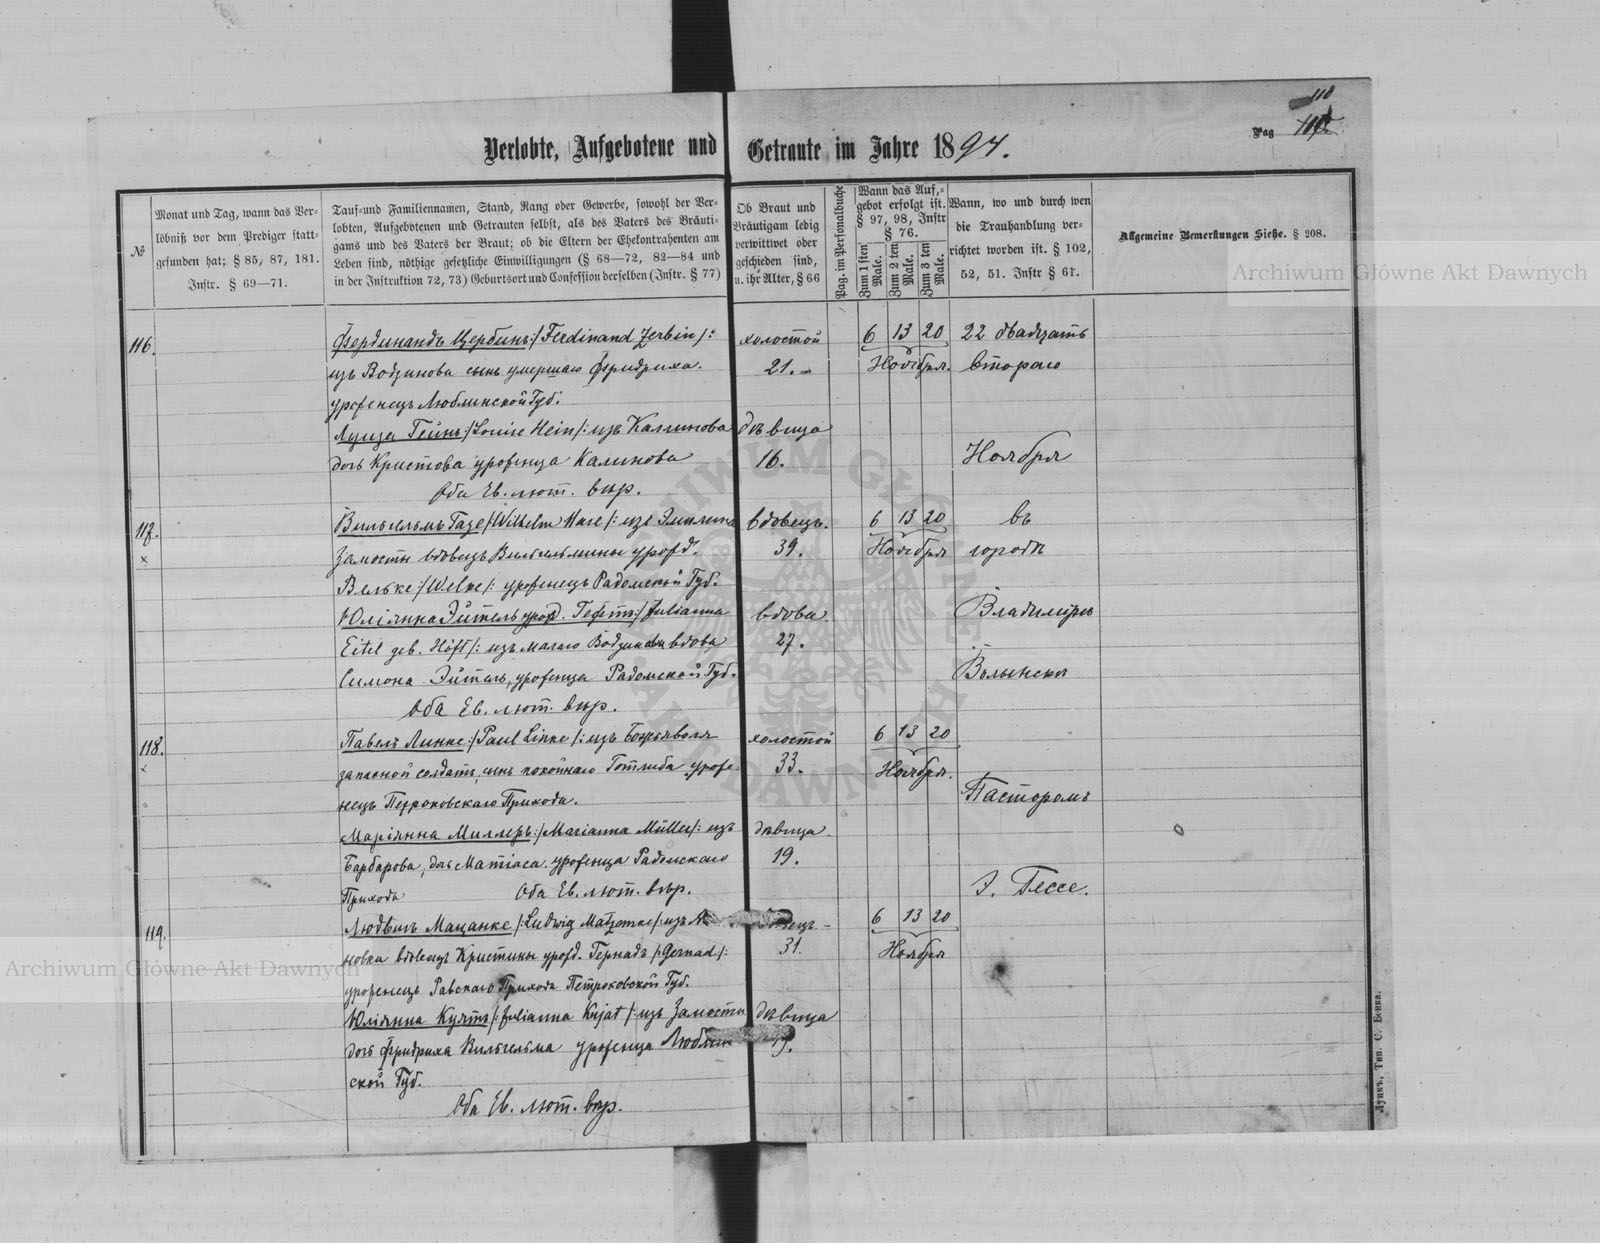 118
Pag
Verlobte, Aufgebotene und Getraute im Jahre 1894.
№
Monat und Tag, wann das Ver-
löbniß vor dem Prediger statt-
gefunden hat; § 85, 87, 181.
Instr. § 69—71.
Tauf=und Familiennamen, Stand, Rang oder Gewerbe, sowohl der Ver-
lobten, Aufgebotenen und Getrauten selbst, als des Vaters des Bräuti-
gams und des Vaters der Braut; ob die Eltern der Ehekontrahenten am
Leben sind, nöthige gesetzliche Einwilligungen (§ 68—72, 82—84 und
in der Instruktion 72, 73) Geburtsort und Confession derselben (Instr. § 77)
Ob Braut und
Bräutigam ledig
verwittwet oder
geschieden sind,
u. ihr Alter, § 66
Pag. im Personalbuche
Wann das Auf,=
gebot erfolgt ist.
§ 97, 98, Instr
§ 76.
Zum 1sten Male.
Zum 2 ten Male.
Zum 3 ten Male.
Wann, wo und durch wen
die Trauhandlung ver-
richtet worden ist. § 102,
52, 51. Instr § 61.
Allgemeine Bemerkungen Siehe. § 208.
Archiwum Główne Akt Dawnych
116. Фердинандъ Цербинъ /: Ferdinand Zerbin /: холостой 6 13 20 22 двадцать
изъ Водзинова сынъ умершаго Фридриха. 21. Ноября. втораго
уроженецъ Люблинской Губ.
Луиза Гейнъ /: Louise Hein /: изъ Калинова дѣвица
дочь Кристова уроженца Калинова 16. Ноября
Оба Ев. лют. вѣр.
117. Вильгельмъ Газе /: Wilhelm Hase /: изъ вдовецъ. 6 13 20 въ
x Замости вдовецъ Вильгельмины урожд. 39. Ноября городѣ
Вельке /: Welke /: уроженецъ Радомской Губ.
Юліянна Эйтель урожд. Гефтъ /: Julianna вдова. Владимірѣ
Eitel geb. Höft /: изъ малаго вдова 27.
Симона Эйтель, уроженца Радомской Губ. Волынскѣ
Оба Ев. лют. вѣр.
118. Павелъ Линке /: Paul Linke /: изъ Божьяволя холостой 6 13 20
x запасной солдатъ, сынъ покойнаго Готлиба уроже- 33. Ноября.
нецъ Петроковскаго Прихода. Пасторомъ
Маріянна Миллеръ /: Marianna Müller /: изъ дѣвица.
Барбарова, дочь Матіаса уроженца Радомскаго 19.
Прихода Оба Ев. лют. вѣр. Э. Гессе.
119. Людвигъ Мацанке /: Ludwig Matzanke /: изъ 6 13 20
новка вдовецъ Кристины урожд. Гернадъ /: Gernad /: 31. Ноября
уроженецъ Равскаго Прихода Петроковской Губ.
Юліянна Куятъ /: Julianna Kujat /: изъ Замости дѣвица
дочь Фридриха Вильгельма уроженца Люблин-
ской Губ.
Оба Ев. лют. вѣр.
Archiwum Główne Akt Dawnych
Луцкъ, Тип. С. Бенка.